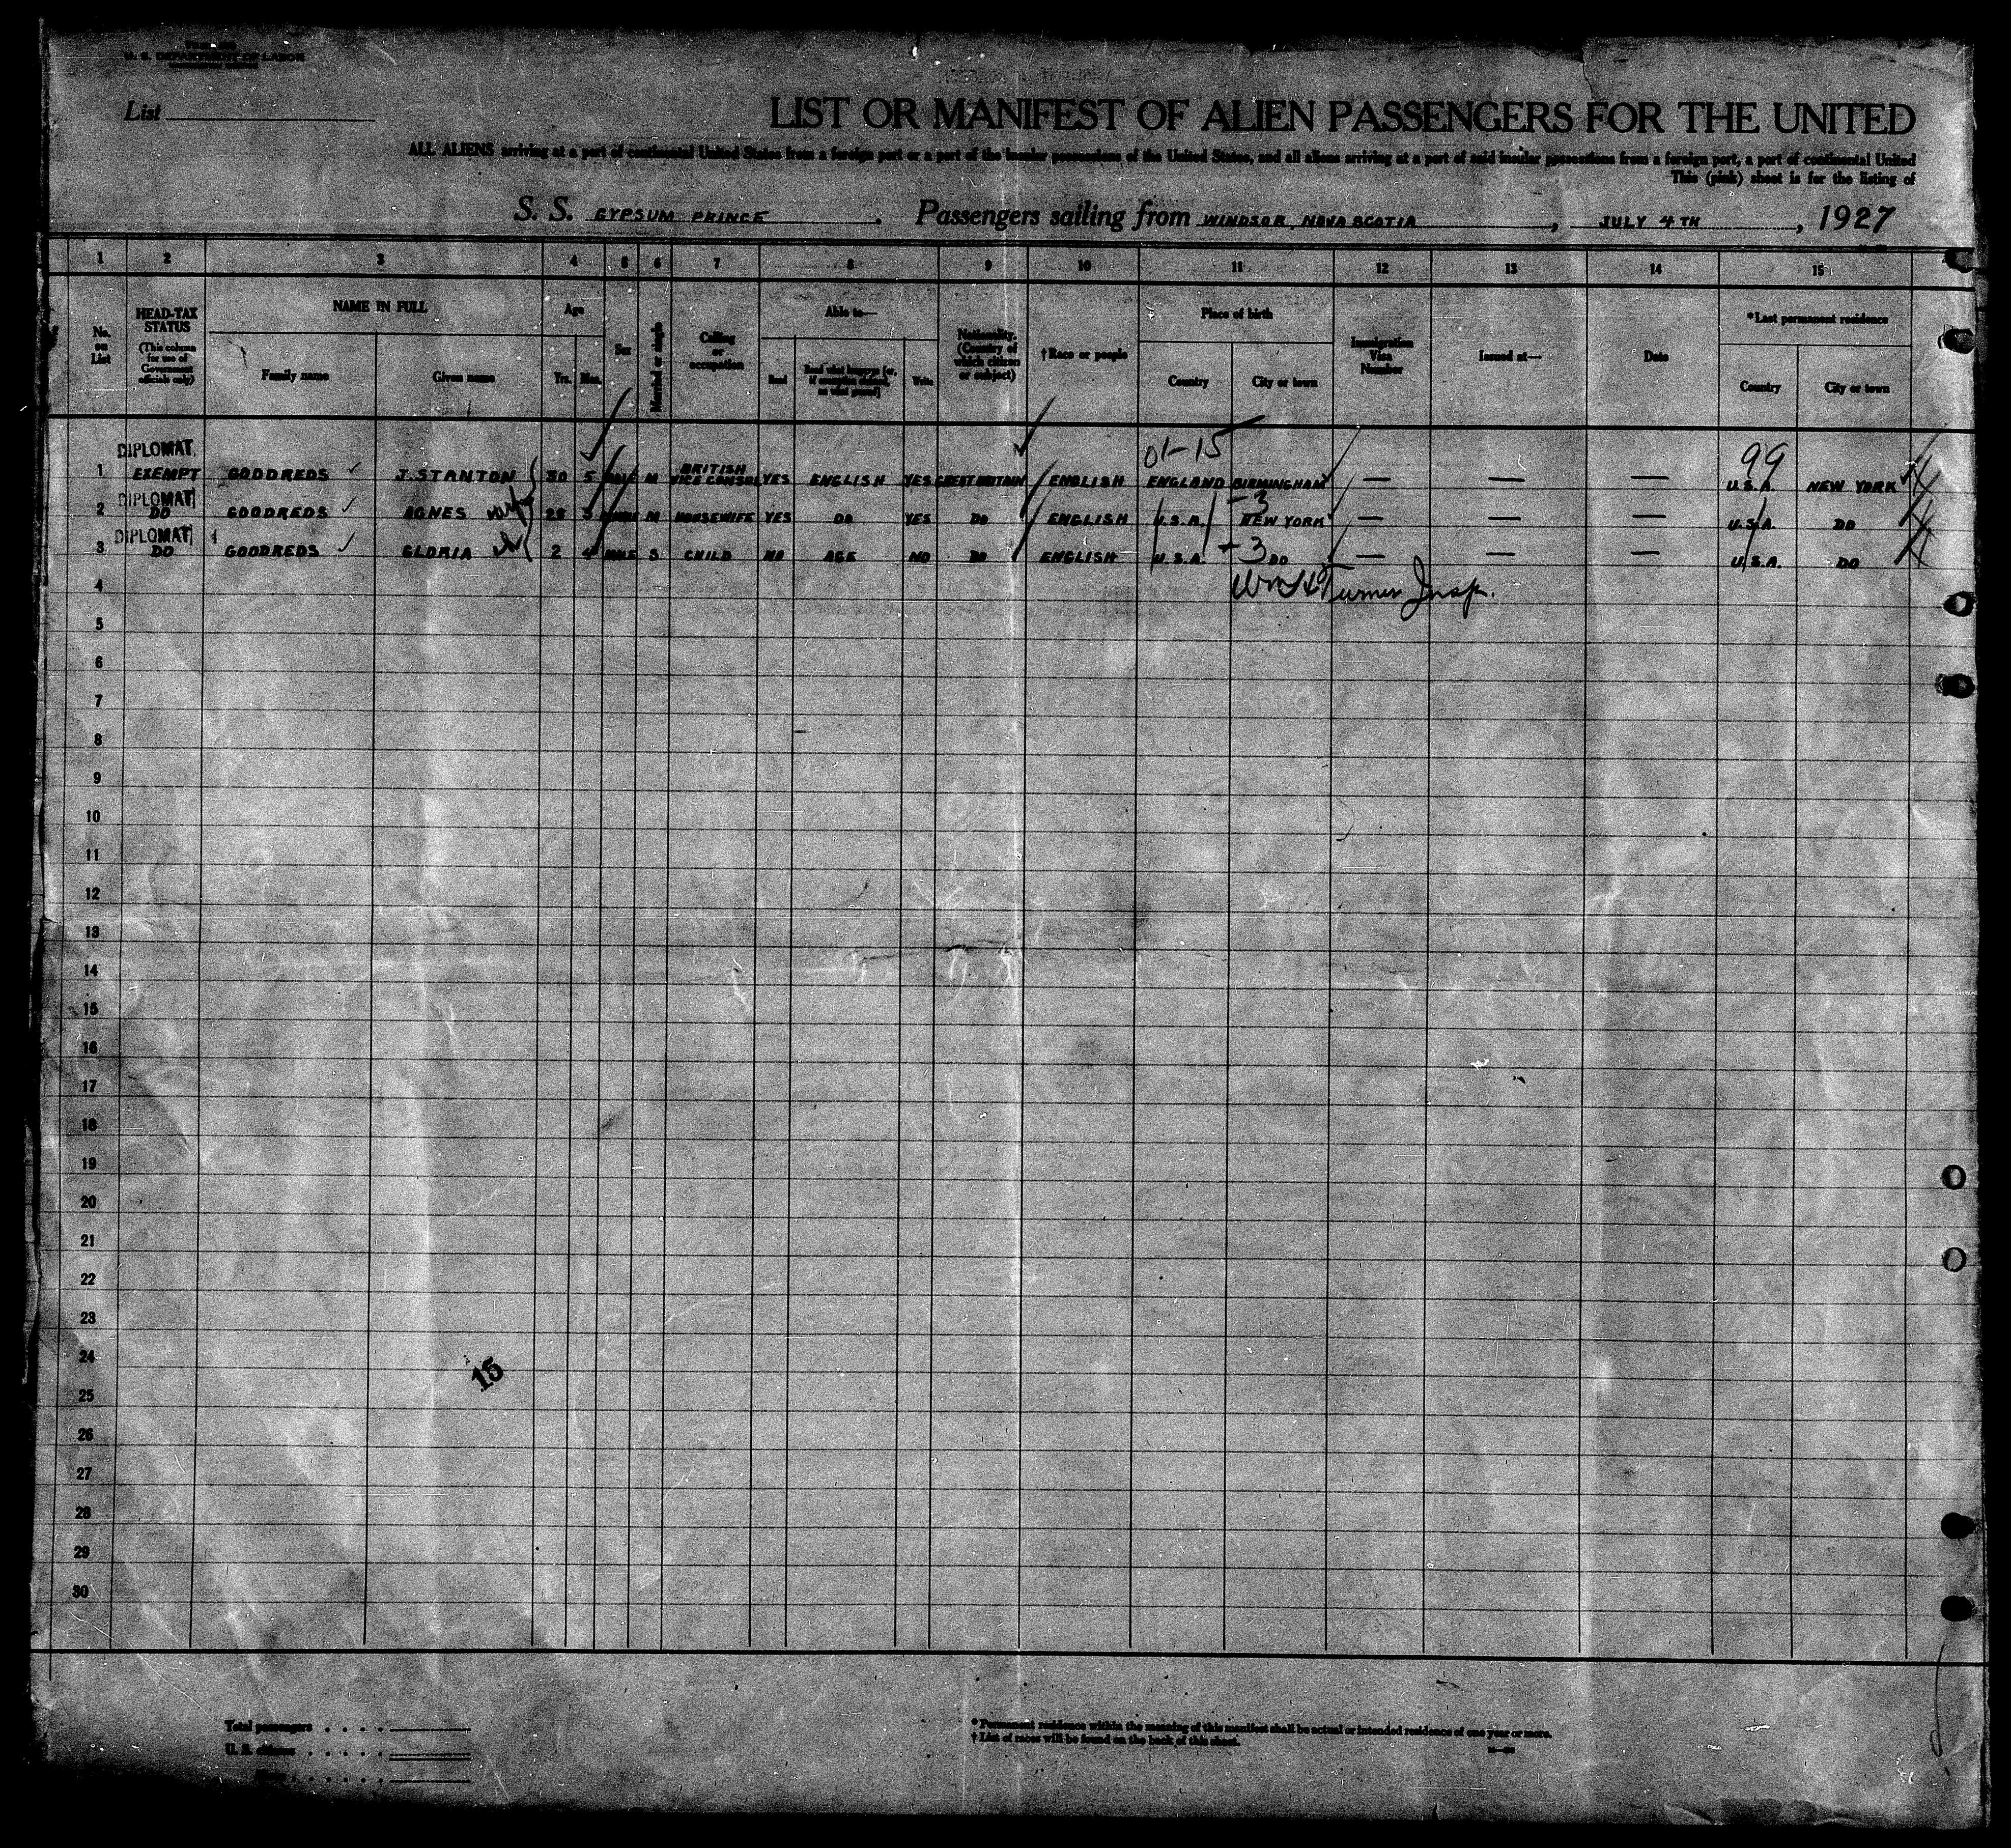 U. S. DEPARTMENT OF LABOR
List
LIST OR MANIFEST OF ALIEN PASSENGERS FOR THE UNITED
ALL ALIENS arriving at a port of continental United States from a foreign port or a port of the insular possessions of the United States, and all aliens arriving at a port of said insular possessions from a foreign port, a port of continental United
This (pink) sheet is for the listing of
S. S. GYPSUM PRINCE . Passengers sailing from WINDSOR, NOVA SCOTIA , JULY 4TH , 1927
1 2 3 4 5 6 7 8 9 10 11 12 13 14 15
No. on List
HEAD-TAX STATUS
(This column for use of Government officials only)
NAME IN FULL
Family name Given name
Age
Yrs. Mos.
Sex
Married or single
Calling or occupation
Able to—
Read Read what language [or, if exemption claimed, on what ground] Write
Nationality. (Country of which citizen or subject)
†Race or people
Place of birth
Country City or town
Immigration Visa Number
Issued at—
Date
*Last permanent residence
Country City or town
01-15 99
DIPLOMAT
1 EXEMPT GOODREDS J. STANTON 30 5 MALE M BRITISH VICE CONSUL YES ENGLISH YES GREAT BRITAIN ENGLISH ENGLAND BIRMINGHAM — — — U.S.A. NEW YORK
DIPLOMAT
2 DO GOODREDS AGNES wife 28 3 M HOUSEWIFE YES DO YES DO ENGLISH U.S.A. -3 NEW YORK — — — U.S.A. DO
DIPLOMAT
3 DO GOODREDS GLORIA 2 4 S CHILD NO AGE NO DO ENGLISH U.S.A. -3 DO — — — U.S.A. DO
4 Wm H Turner Insp.
5
6
7
8
9
10
11
12
13
14
15
16
17
18
19
20
21
22
23
24
15
25
26
27
28
29
30
Total passengers . . . .
U. S. citizens . . . . .
* Permanent residence within the meaning of this manifest shall be actual or intended residence of one year or more.
† List of races will be found on the back of this sheet.